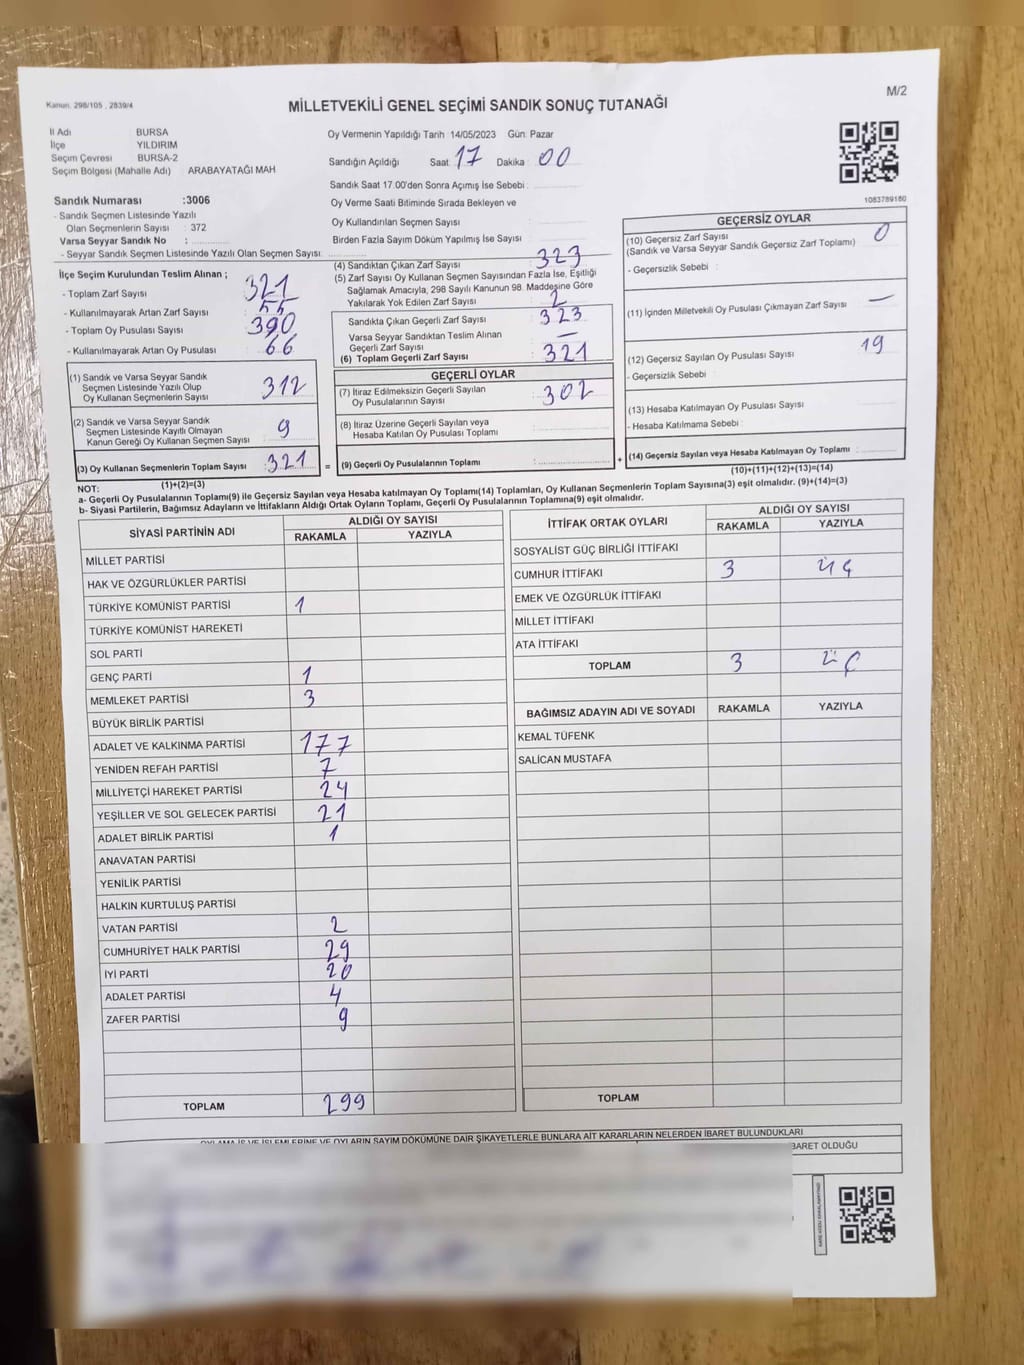 Kanun: 298/105 , 2839/4
MİLLETVEKİLİ GENEL SEÇİMİ SANDIK SONUÇ TUTANAĞI
M/2
İl Adı BURSA
İlçe YILDIRIM
Seçim Çevresi BURSA-2
Seçim Bölgesi (Mahalle Adı) : ARABAYATAĞI MAH
Oy Vermenin Yapıldığı Tarih : 14/05/2023 Gün: Pazar
Sandığın Açıldığı Saat : 17 Dakika : 00
Sandık Saat 17.00'den Sonra Açımış İse Sebebi :
Oy Verme Saati Bitiminde Sırada Bekleyen ve
Oy Kullandırılan Seçmen Sayısı :
Birden Fazla Sayım Döküm Yapılmış İse Sayısı :
1083789180
Sandık Numarası :3006
- Sandık Seçmen Listesinde Yazılı
Olan Seçmenlerin Sayısı : 372
Varsa Seyyar Sandık No :
- Seyyar Sandık Seçmen Listesinde Yazılı Olan Seçmen Sayısı:
İlçe Seçim Kurulundan Teslim Alınan ;
- Toplam Zarf Sayısı : 321
- Kullanılmayarak Artan Zarf Sayısı : 55
- Toplam Oy Pusulası Sayısı : 390
- Kullanılmayarak Artan Oy Pusulası : 66
(1) Sandık ve Varsa Seyyar Sandık
Seçmen Listesinde Yazılı Olup
Oy Kullanan Seçmenlerin Sayısı : 312
(2) Sandık ve Varsa Seyyar Sandık
Seçmen Listesinde Kayıtlı Olmayan
Kanun Gereği Oy Kullanan Seçmen Sayısı : 9
(3) Oy Kullanan Seçmenlerin Toplam Sayısı : 321
(1)+(2)=(3)
(4) Sandıktan Çıkan Zarf Sayısı : 323
(5) Zarf Sayısı Oy Kullanan Seçmen Sayısından Fazla İse, Eşitliği
Sağlamak Amacıyla, 298 Sayılı Kanunun 98. Maddesine Göre
Yakılarak Yok Edilen Zarf Sayısı : 2
Sandıkta Çıkan Geçerli Zarf Sayısı : 323
Varsa Seyyar Sandıktan Teslim Alınan
Geçerli Zarf Sayısı : —
(6) Toplam Geçerli Zarf Sayısı : 321
GEÇERLİ OYLAR
(7) İtiraz Edilmeksizin Geçerli Sayılan
Oy Pusulalarının Sayısı : 302
(8) İtiraz Üzerine Geçerli Sayılan veya
Hesaba Katılan Oy Pusulası Toplamı :
= (9) Geçerli Oy Pusulalarının Toplamı :
GEÇERSİZ OYLAR
(10) Geçersiz Zarf Sayısı : 0
(Sandık ve Varsa Seyyar Sandık Geçersiz Zarf Toplamı)
- Geçersizlik Sebebi :
(11) İçinden Milletvekili Oy Pusulası Çıkmayan Zarf Sayısı : —
(12) Geçersiz Sayılan Oy Pusulası Sayısı : 19
- Geçersizlik Sebebi :
(13) Hesaba Katılmayan Oy Pusulası Sayısı :
- Hesaba Katılmama Sebebi :
+ (14) Geçersiz Sayılan veya Hesaba Katılmayan Oy Toplamı :
(10)+(11)+(12)+(13)=(14)
NOT:
a- Geçerli Oy Pusulalarının Toplamı(9) ile Geçersiz Sayılan veya Hesaba katılmayan Oy Toplamı(14) Toplamları, Oy Kullanan Seçmenlerin Toplam Sayısına(3) eşit olmalıdır. (9)+(14)=(3)
b- Siyasi Partilerin, Bağımsız Adayların ve İttifakların Aldığı Ortak Oyların Toplamı, Geçerli Oy Pusulalarının Toplamına(9) eşit olmalıdır.
SİYASİ PARTİNİN ADI ALDIĞI OY SAYISI
RAKAMLA YAZIYLA
MİLLET PARTİSİ
HAK VE ÖZGÜRLÜKLER PARTİSİ
TÜRKİYE KOMÜNİST PARTİSİ 1
TÜRKİYE KOMÜNİST HAREKETİ
SOL PARTİ
GENÇ PARTİ 1
MEMLEKET PARTİSİ 3
BÜYÜK BİRLİK PARTİSİ
ADALET VE KALKINMA PARTİSİ 177
YENİDEN REFAH PARTİSİ 7
MİLLİYETÇİ HAREKET PARTİSİ 24
YEŞİLLER VE SOL GELECEK PARTİSİ 21
ADALET BİRLİK PARTİSİ 1
ANAVATAN PARTİSİ
YENİLİK PARTİSİ
HALKIN KURTULUŞ PARTİSİ
VATAN PARTİSİ 2
CUMHURİYET HALK PARTİSİ 29
İYİ PARTİ 20
ADALET PARTİSİ 4
ZAFER PARTİSİ 9
TOPLAM 299
İTTİFAK ORTAK OYLARI ALDIĞI OY SAYISI
RAKAMLA YAZIYLA
SOSYALİST GÜÇ BİRLİĞİ İTTİFAKI
CUMHUR İTTİFAKI 3 üç
EMEK VE ÖZGÜRLÜK İTTİFAKI
MİLLET İTTİFAKI
ATA İTTİFAKI
TOPLAM 3 üç
BAĞIMSIZ ADAYIN ADI VE SOYADI RAKAMLA YAZIYLA
KEMAL TÜFENK
SALİCAN MUSTAFA
TOPLAM
OYLAMA İŞ VE İŞLEMLERİNE VE OYLARIN SAYIM DÖKÜMÜNE DAİR ŞİKAYETLERLE BUNLARA AİT KARARLARIN NELERDEN İBARET BULUNDUKLARI
BARET OLDUĞU